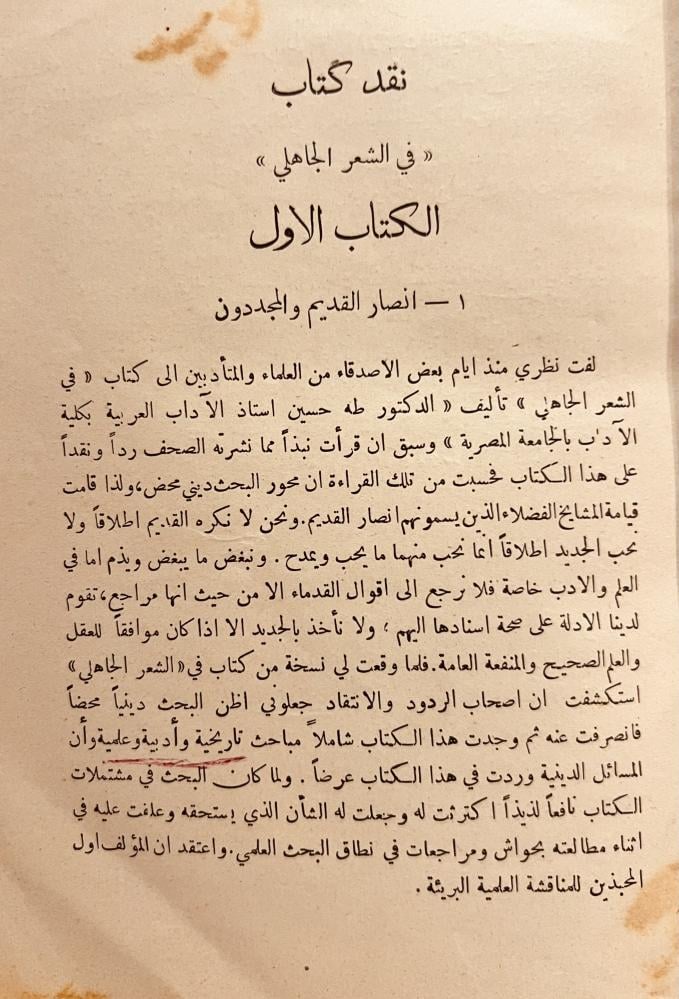 نقد كتاب
« في الشعر الجاهلي »
الكتاب الاول
١ — انصار القديم والمجددون
لفت نظري منذ ايام بعض الاصدقاء من العلماء والمتأدبين الى كتاب « في
الشعر الجاهلي » تأليف « الدكتور طه حسين استاذ الآداب العربية بكلية
الآداب بالجامعة المصرية » وسبق ان قرأت نبذاً مما نشرته الصحف رداً ونقداً
على هذا الكتاب فحسبت من تلك القراءة ان محور البحث ديني محض، ولذا قامت
قيامة المشايخ الفضلاء الذين يسمونهم انصار القديم. ونحن لا نكره القديم اطلاقاً ولا
نحب الجديد اطلاقاً انما نحب منهما ما يحب ويمدح . ونبغض ما يبغض ويذم اما في
العلم والادب خاصة فلا نرجع الى اقوال القدماء الا من حيث انها مراجع، تقوم
لدينا الادلة على صحة اسنادها اليهم ؛ ولا نأخذ بالجديد الا اذا كان موافقاً للعقل
والعلم الصحيح والمنفعة العامة. فلما وقعت لي نسخة من كتاب في « الشعر الجاهلي »
استكشفت ان اصحاب الردود والانتقاد جعلوني اظن البحث دينياً محضاً
فانصرفت عنه ثم وجدت هذا الكتاب شاملاً مباحث تاريخية وأدبية وعلمية وأن
المسائل الدينية وردت في هذا الكتاب عرضاً . ولما كان البحث في مشتملات
الكتاب نافعاً لذيذاً اكترثت له وجعلت له الشأن الذي يستحقه وعلقت عليه في
اثناء مطالعته بحواش ومراجعات في نطاق البحث العلمي. واعتقد ان المؤلف اول
المحبذين للمناقشة العلمية البريئة .